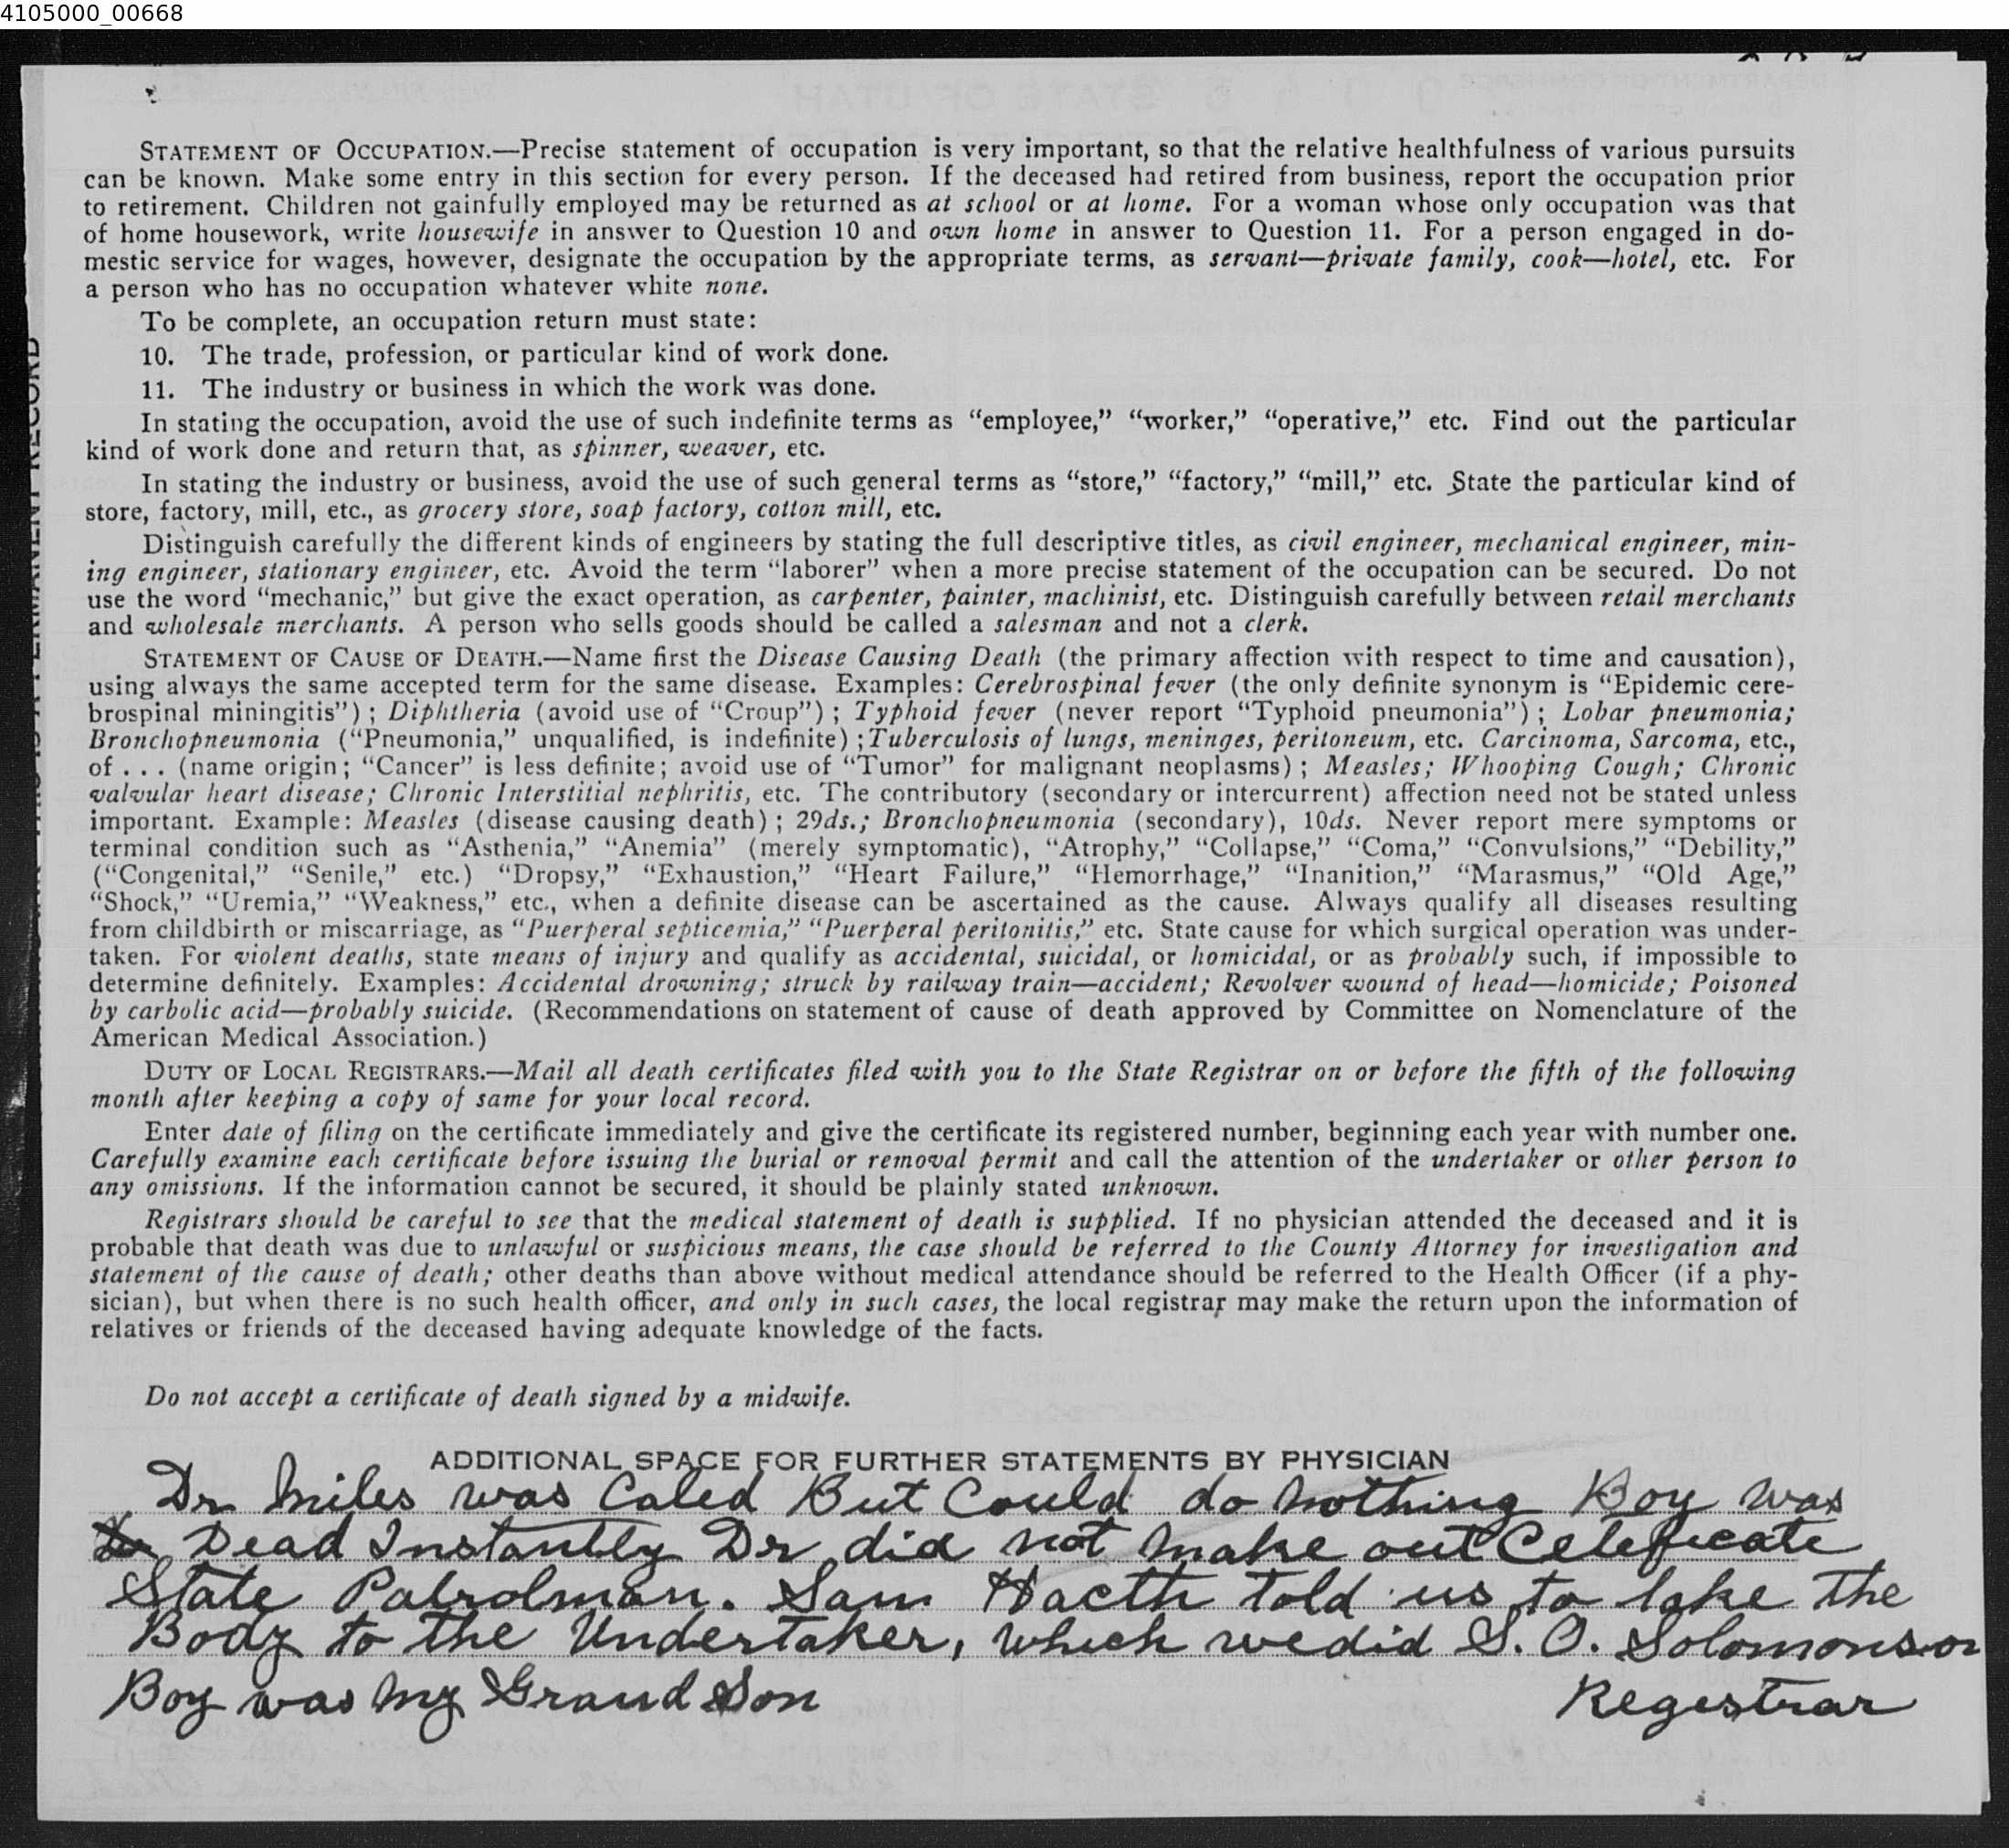 4105000_00668
STATEMENT OF OCCUPATION.—Precise statement of occupation is very important, so that the relative healthfulness of various pursuits
can be known. Make some entry in this section for every person. If the deceased had retired from business, report the occupation prior
to retirement. Children not gainfully employed may be returned as at school or at home. For a woman whose only occupation was that
of home housework, write housewife in answer to Question 10 and own home in answer to Question 11. For a person engaged in do-
mestic service for wages, however, designate the occupation by the appropriate terms, as servant—private family, cook—hotel, etc. For
a person who has no occupation whatever white none.
To be complete, an occupation return must state:
10. The trade, profession, or particular kind of work done.
11. The industry or business in which the work was done.
In stating the occupation, avoid the use of such indefinite terms as “employee,” “worker,” “operative,” etc. Find out the particular
kind of work done and return that, as spinner, weaver, etc.
In stating the industry or business, avoid the use of such general terms as “store,” “factory,” “mill,” etc. State the particular kind of
store, factory, mill, etc., as grocery store, soap factory, cotton mill, etc.
Distinguish carefully the different kinds of engineers by stating the full descriptive titles, as civil engineer, mechanical engineer, min-
ing engineer, stationary engineer, etc. Avoid the term “laborer” when a more precise statement of the occupation can be secured. Do not
use the word “mechanic,” but give the exact operation, as carpenter, painter, machinist, etc. Distinguish carefully between retail merchants
and wholesale merchants. A person who sells goods should be called a salesman and not a clerk.
STATEMENT OF CAUSE OF DEATH.—Name first the Disease Causing Death (the primary affection with respect to time and causation),
using always the same accepted term for the same disease. Examples: Cerebrospinal fever (the only definite synonym is “Epidemic cere-
brospinal miningitis”) ; Diphtheria (avoid use of “Croup”) ; Typhoid fever (never report “Typhoid pneumonia”) ; Lobar pneumonia;
Bronchopneumonia (“Pneumonia,” unqualified, is indefinite) ;Tuberculosis of lungs, meninges, peritoneum, etc. Carcinoma, Sarcoma, etc.,
of . . . (name origin; “Cancer” is less definite; avoid use of “Tumor” for malignant neoplasms) ; Measles; Whooping Cough; Chronic
valvular heart disease; Chronic Interstitial nephritis, etc. The contributory (secondary or intercurrent) affection need not be stated unless
important. Example: Measles (disease causing death) ; 29ds.; Bronchopneumonia (secondary), 10ds. Never report mere symptoms or
terminal condition such as “Asthenia,” “Anemia” (merely symptomatic), “Atrophy,” “Collapse,” “Coma,” “Convulsions,” “Debility,”
(“Congenital,” “Senile,” etc.) “Dropsy,” “Exhaustion,” “Heart Failure,” “Hemorrhage,” “Inanition,” “Marasmus,” “Old Age,”
“Shock,” “Uremia,” “Weakness,” etc., when a definite disease can be ascertained as the cause. Always qualify all diseases resulting
from childbirth or miscarriage, as “Puerperal septicemia,” “Puerperal peritonitis,” etc. State cause for which surgical operation was under-
taken. For violent deaths, state means of injury and qualify as accidental, suicidal, or homicidal, or as probably such, if impossible to
determine definitely. Examples: Accidental drowning; struck by railway train—accident; Revolver wound of head—homicide; Poisoned
by carbolic acid—probably suicide. (Recommendations on statement of cause of death approved by Committee on Nomenclature of the
American Medical Association.)
DUTY OF LOCAL REGISTRARS.—Mail all death certificates filed with you to the State Registrar on or before the fifth of the following
month after keeping a copy of same for your local record.
Enter date of filing on the certificate immediately and give the certificate its registered number, beginning each year with number one.
Carefully examine each certificate before issuing the burial or removal permit and call the attention of the undertaker or other person to
any omissions. If the information cannot be secured, it should be plainly stated unknown.
Registrars should be careful to see that the medical statement of death is supplied. If no physician attended the deceased and it is
probable that death was due to unlawful or suspicious means, the case should be referred to the County Attorney for investigation and
statement of the cause of death; other deaths than above without medical attendance should be referred to the Health Officer (if a phy-
sician), but when there is no such health officer, and only in such cases, the local registrar may make the return upon the information of
relatives or friends of the deceased having adequate knowledge of the facts.
Do not accept a certificate of death signed by a midwife.
ADDITIONAL SPACE FOR FURTHER STATEMENTS BY PHYSICIAN
Dr Miles was Caled But Could do nothing Boy was
Dead Instantly Dr did not make out Celeficate
State Patrolman. Sam Hacth told us to take the
Body to the Undertaker, which we did S. O. Solomonson
Boy was my Grand Son Regestrar